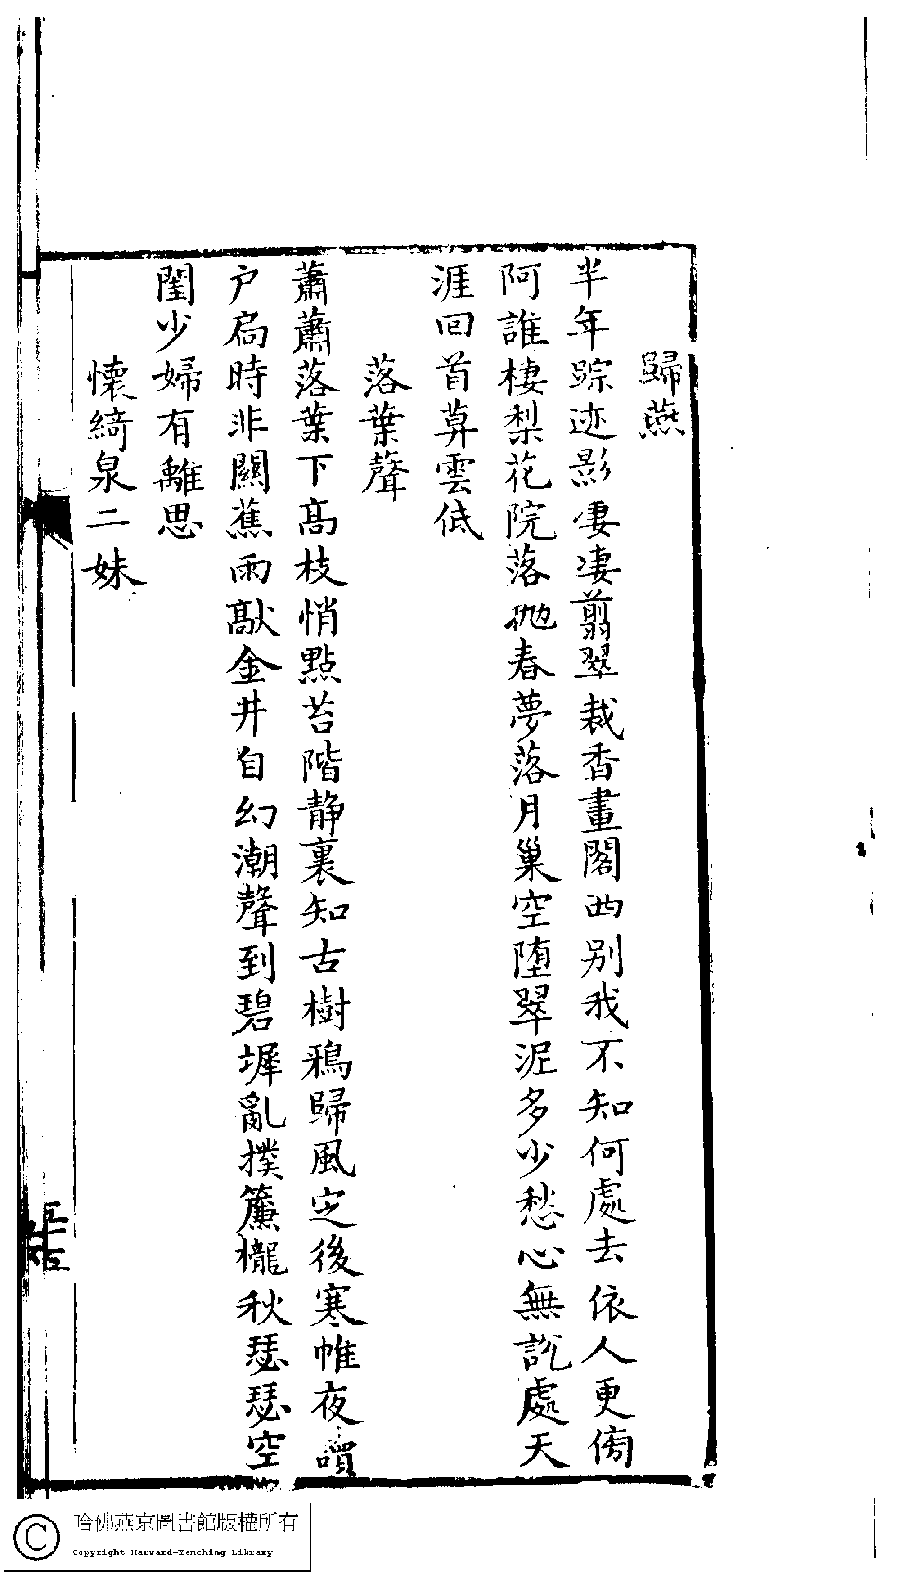 歸燕
半年踪迹影凄凄翦翠裁香畫閣西别我不知何處去依人更傍
阿誰棲梨花院落抛春夢落月巢空墮翠泥多少愁心無訴處天
涯回首草雲低
落葉聲
蕭蕭落葉下高枝悄點苔階静裏知古樹鴉歸風定後寒帷夜讀
户扃時非關蕉雨敲金井自幻潮聲到碧墀亂撲簾櫳秋瑟瑟空
閨少婦有離思
懷綺泉二妹
哈佛燕京圖書館版權所有
Copyright Harvard-Yenching Library